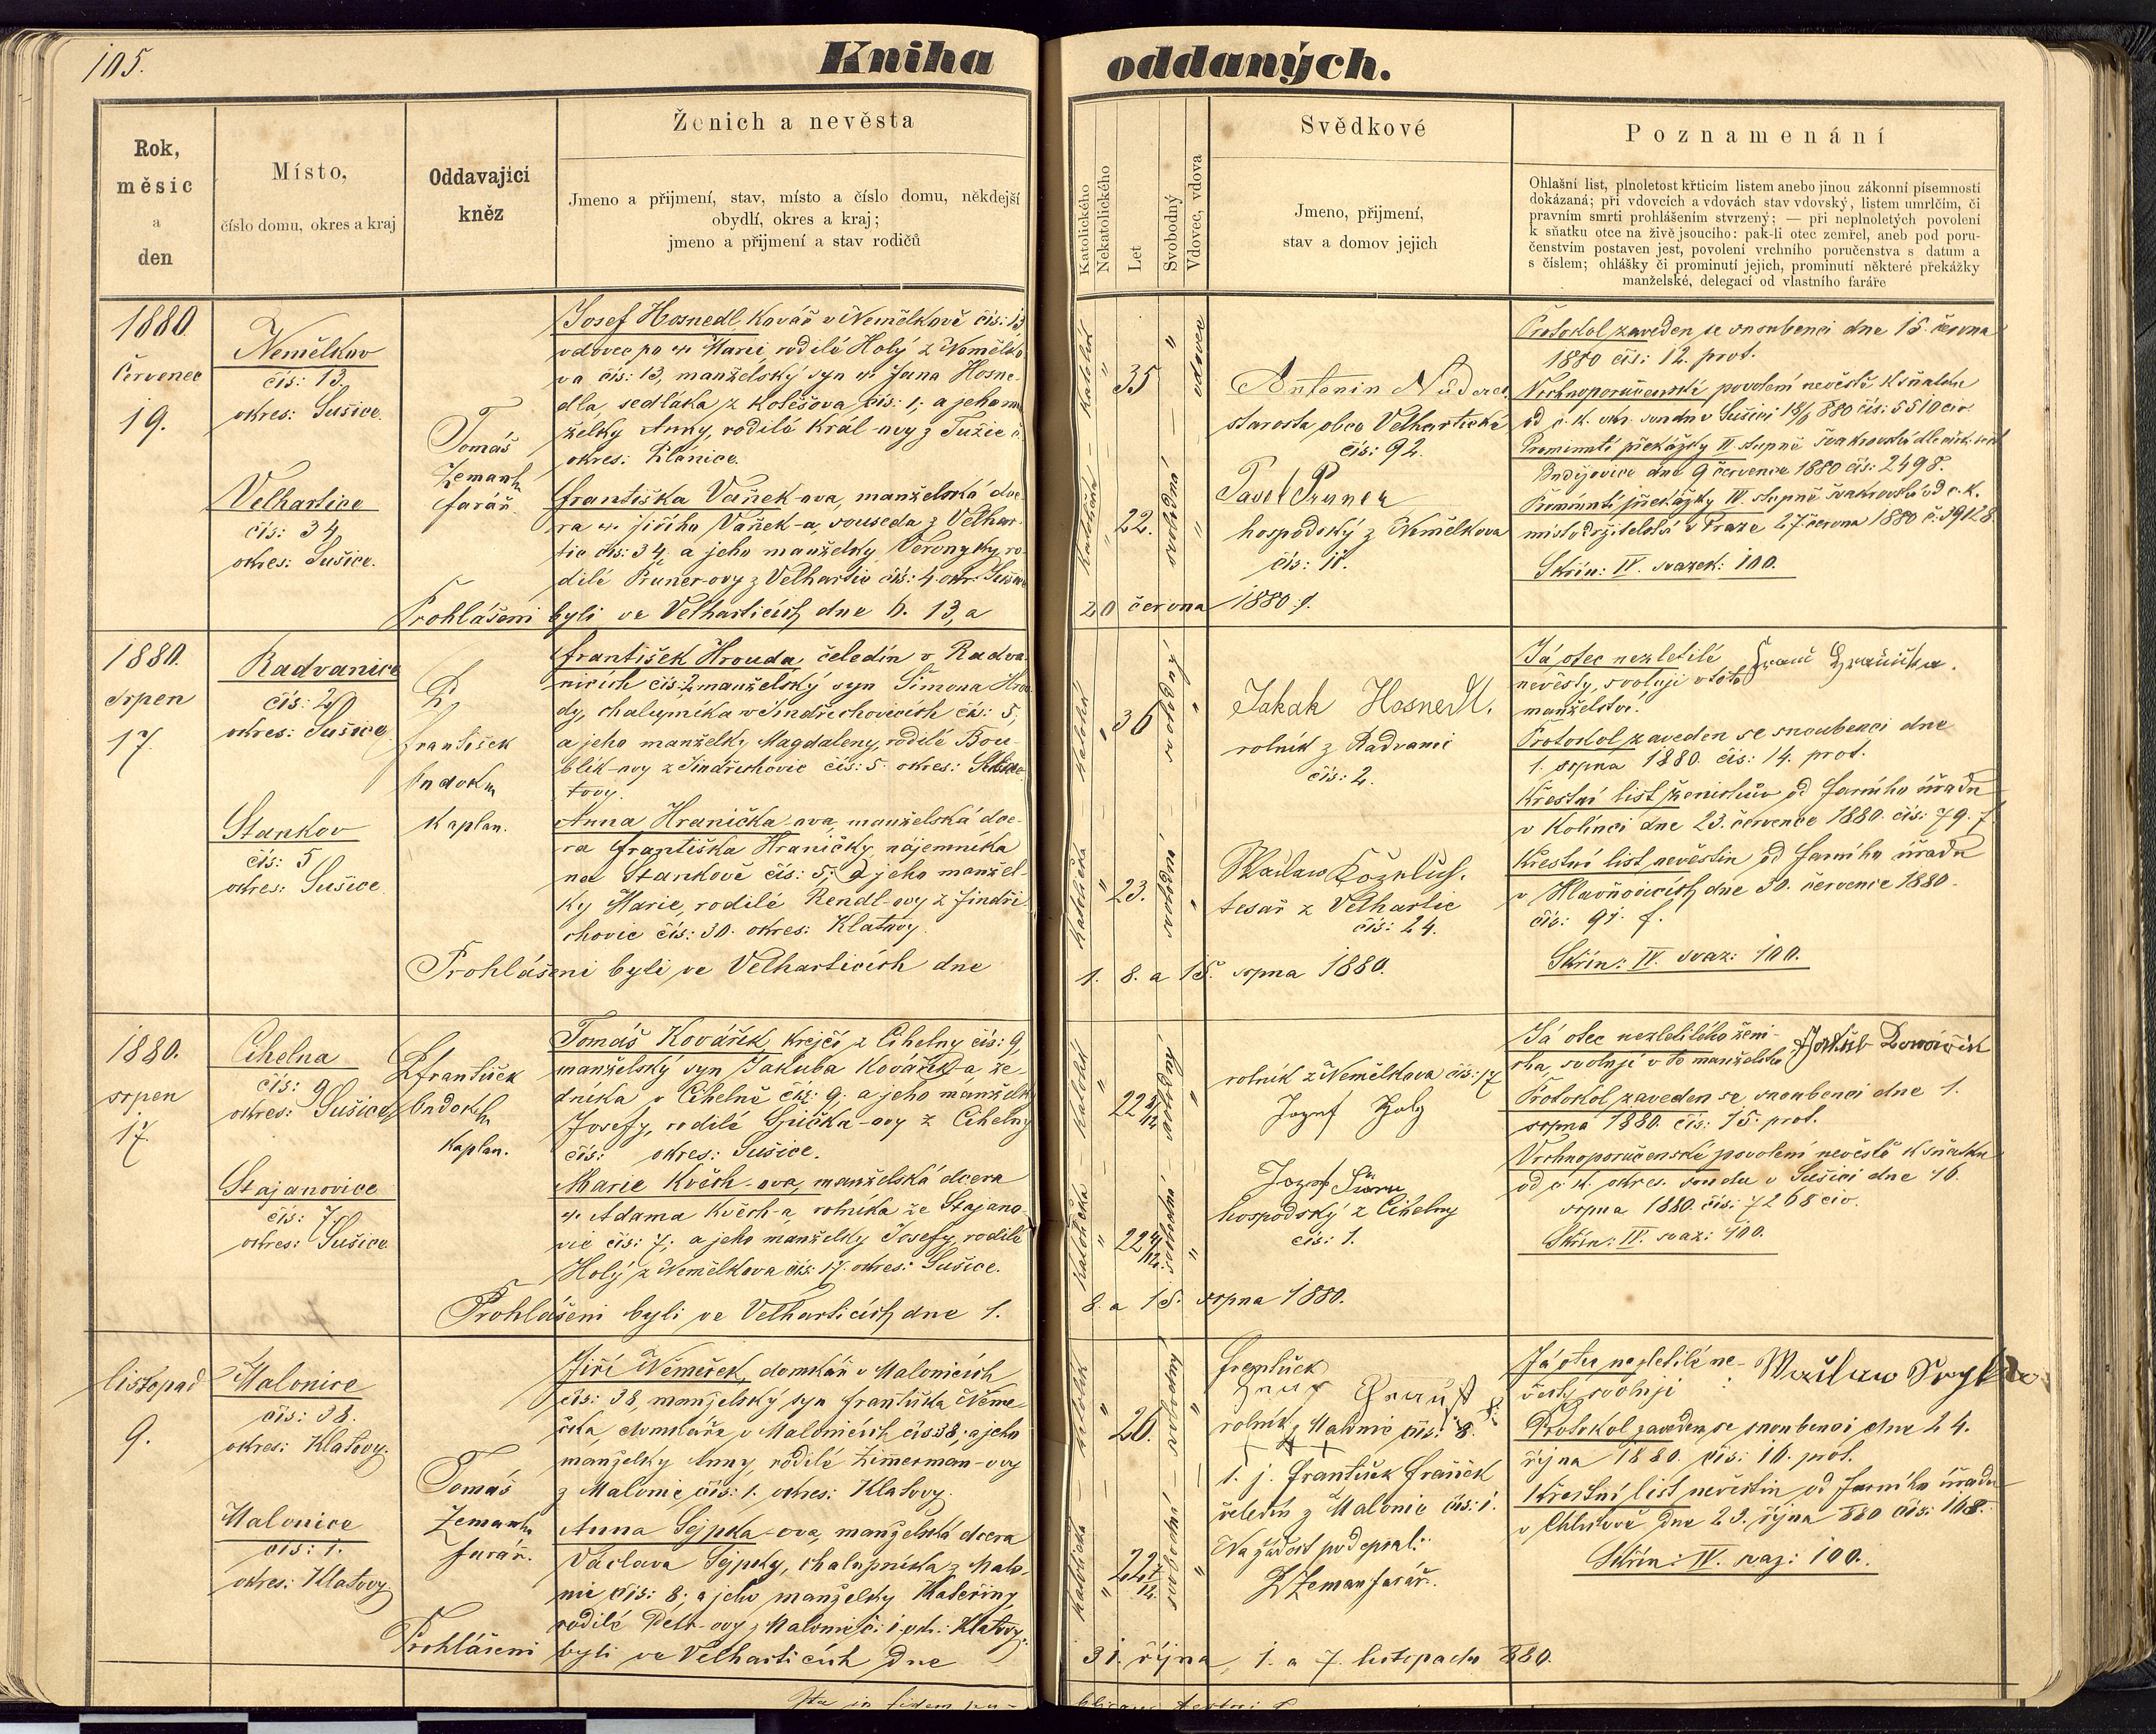 105.
Kniha oddaných.
Rok,
měsíc
a
den
Místo,
číslo domu, okres a kraj
Oddavající
kněz
Ženich a nevěsta
Jmeno a přijmení, stav, místo a číslo domu, někdejší
obydlí, okres a kraj;
jmeno a přijmení a stav rodičů
Katolického
Nekatolického
Let
Svobodný
Vdovec, vdova
Svědkové
Jmeno, přijmení,
stav a domov jejich
Poznamenání
Ohlašní list, plnoletost křticím listem anebo jinou zákonní písemností
dokázaná; při vdovcích a vdovách stav vdovský, listem umrlčím, či
pravním smrti prohlášením stvrzený; — při neplnoletých povolení
k sňatku otce na živě jsoucího: pak-li otec zemřel, aneb pod poru-
čenstvím postaven jest, povolení vrchního poručenstva s datum a
s číslem; ohlášky či prominutí jejich, prominutí některé překážky
manželské, delegací od vlastního faráře
1880
červenec
19.
Nemělkov
čís: 13.
okres: Sušice.
Velhartice
čís: 34
okres: Sušice.
Tomáš
Zeman
farář
Josef Hosnedl, kovář v Nemělkově čís: 13
vdovec po Marii, rodilé Holý z Nemělko-
va čís: 13, manželský syn Jana Hosne-
dla, sedláka z Kolešova čís: 1, a jeho
želky Anny, rodilé Král-ovy z Tužic
okres: Plánice.
Františka Vaněk-ova, manželská dce-
ra Jiřího Vaněk-a, souseda z Velhar-
tic čís: 34, a jeho manželky Veronyky, ro-
dilé Pruner-ovy z Velhartic čís: 4 okr: Sušice
Prohlášeni byli ve Velharticích dne 6. 13, a
katolík
35
vdovec
katolička
22.
svobodná
Antonín
starosta obce Velhartické
čís: 92.
Pavel Pruner
hospodský z Nemělkova
čís: 11.
20 června 1880.
Protokol zaveden se snoubenci dne 15. června
1880 čís: 12. prot.
Vrchnoporučenské povolení nevěstě k sňatku
od c. k. okr. soudu v Sušici čís: 5510 civ.
Prominutí překážky II. stupně švakrovství
Budějovice dne 9 července 1880 čís: 2498.
Prominutí překážky IV. stupně švakrovství od c. k.
místodržitelství v Praze 27. června 1880 č: 39128.
Skřín: IV. svazek: 100.
1880.
srpen
17.
Radvanice
čís: 2
okres: Sušice
Stankov
čís: 5
okres: Sušice
P.
František
kaplan.
František Hrouda, čeledín v Radva-
nicích čís: 2 manželský syn Šimona Hrou-
dy, chalupníka v Jindřichovicích čís: 5,
a jeho manželky Magdaleny, rodilé Bou-
blík-ovy z Jindřichovic čís: 5. okres: Kla-
tovy.
Anna Hranička-ova, manželská dce-
ra Františka Hraničky, nájemníka
na Stankově čís: 5; a jeho manžel-
ky Marie, rodilé Rendl-ovy z Jindři-
chovic čís: 30. okres: Klatovy.
Prohlášeni byli ve Velharticích dne
katolík
36
svobodný
katolička
23.
svobodná
Jakub Hosnedl.
rolník z Radvanic
čís: 2.
Wáclaw Koželuh.
tesař z Velhartic
čís: 24.
1. 8. a 15. srpna 1880.
Já otec nezletilé
nevěsty, svoluji v toto
manželství.
Protokol zaveden se snoubenci dne
1. srpna 1880. čís: 14. prot.
Křestní list ženichův od farního úřadu
v Kolinci dne 23. července 1880. čís: 79. f.
Křestní list nevěstin od farního úřadu
v Hlavňovicích dne 30. července 1880.
čís: 91. f.
Skřín: IV. svaz: 100.
1880.
srpen
17.
Cihelna
čís: 9
okres: Sušice
Stajanovice
čís: 7.
okres: Sušice
P. František
kaplan.
Tomáš Kovářík, krejčí z Cihelny čís: 9,
manželský syn Jakuba Kovářík-a ze-
dníka v Cihelně čís: 9. a jeho manželky
Josefy, rodilé z Cihelny
čís: okres: Sušice.
Marie Květh-ova, manželská dcera
Adama Květh-a, rolníka ze Stajano-
vic čís: 7; a jeho manželky Josefy, rodilé
Holý z Nemělkova čís: 17. okres: Sušice.
Prohlášeni byli ve Velharticích dne 1.
katolík
22
svobodný
katolička
22
svobodná
rolník z Nemělkova čís: 17
Jozef Holy
Jozef
hospodský z Cihelny
čís: 1.
8. a 15. srpna 1880.
Já otec nezletilého ženi-
cha, svoluji v to manželství
Protokol zaveden se snoubenci dne 1.
srpna 1880. čís: 15. prot.
Vrchnoporučenské povolení nevěstě k sňatku
od c. k. okres. soudu v Sušici dne 16.
srpna 1880. čís: 7268 civ.
Skřín: IV. svaz: 100.
listopad
9.
Malonice
čís: 38.
okres: Klatovy.
Malonice
čís: 1.
okres: Klatovy.
Tomáš
Zeman
farář.
Jiří Němeček, domkář v Malonicích
čís: 38, manželský syn Františka Něme-
čka, domkáře v Malonicích čís 38, a jeho
manželky Anny, rodilé Zimerman-ovy
z Malonic čís: 1. okres: Klatovy.
Anna Sejpka-ova, manželská dcera
Václava Sejpky, chalupníka z Malo-
nic čís: 8; a jeho manželky Kateřiny,
rodilé Petr-ovy z Malonic č: 1. okr.: Klatovy.
Prohlášeni byli ve Velharticích dne
katolík
26.
svobodný
katolička
22
svobodná
rolník z Malonic čís: 8.
+ + +
t. j. František
čeledín z Malonic čís: 1.
Na žádost podepsal:
P. Zeman farář.
31. října, 1. a 7. listopadu 880.
Já otec nezletilé ne-
věsty svoluji :
Protokol zaveden se snoubenci dne 24.
října 1880. čís: 16. prot.
Křestní list nevěstin od farního úřadu
v dne 23. října 880 čís: 108.
Skřín: IV. svaz: 100.